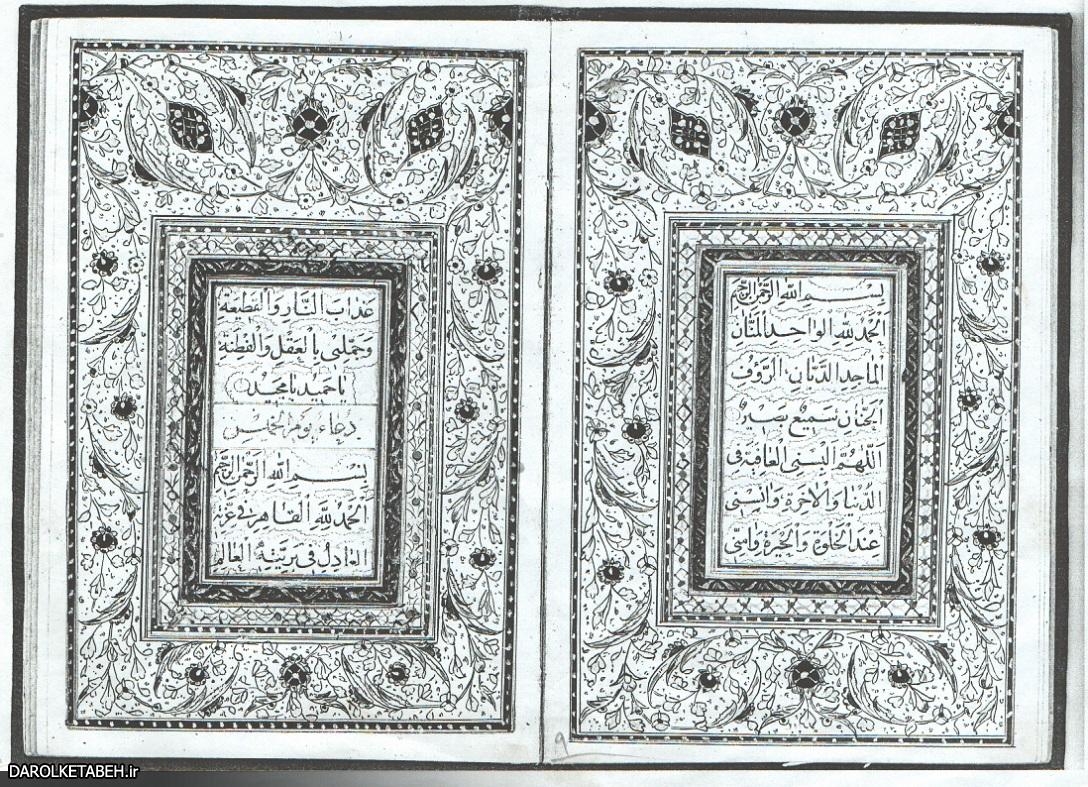 بسم الله الرحمن الرحیم
اَلحَمدُ لِلّهِ الواحِدِ المَنّان
الماجِدِ الدَّیّان الرَّؤُف
الحَنّان سَمیع بَصیر
اَللّهُمَّ اَلبِسنی العافِیَةَ فی
الدُّنیا وَالاخِرَةِ وَانِسنی
عِندَ الخَلوَةِ وَالحَیرَةِ وَامِنّی
عَذابَ النّارِ وَالقَطیعَة
وَجَمِّلنی بِالعَقلِ وَالفِطنَة
یا حَمیدُ یا مَجیدُ
دُعاء یَوم الخمیس
بسم الله الرحمن الرحیم
اَلحَمدُ لِلّهِ القاهِرِ فی عِزّه
العادِل فی بَریّته العالم
۹
DAROLKETABEH.ir